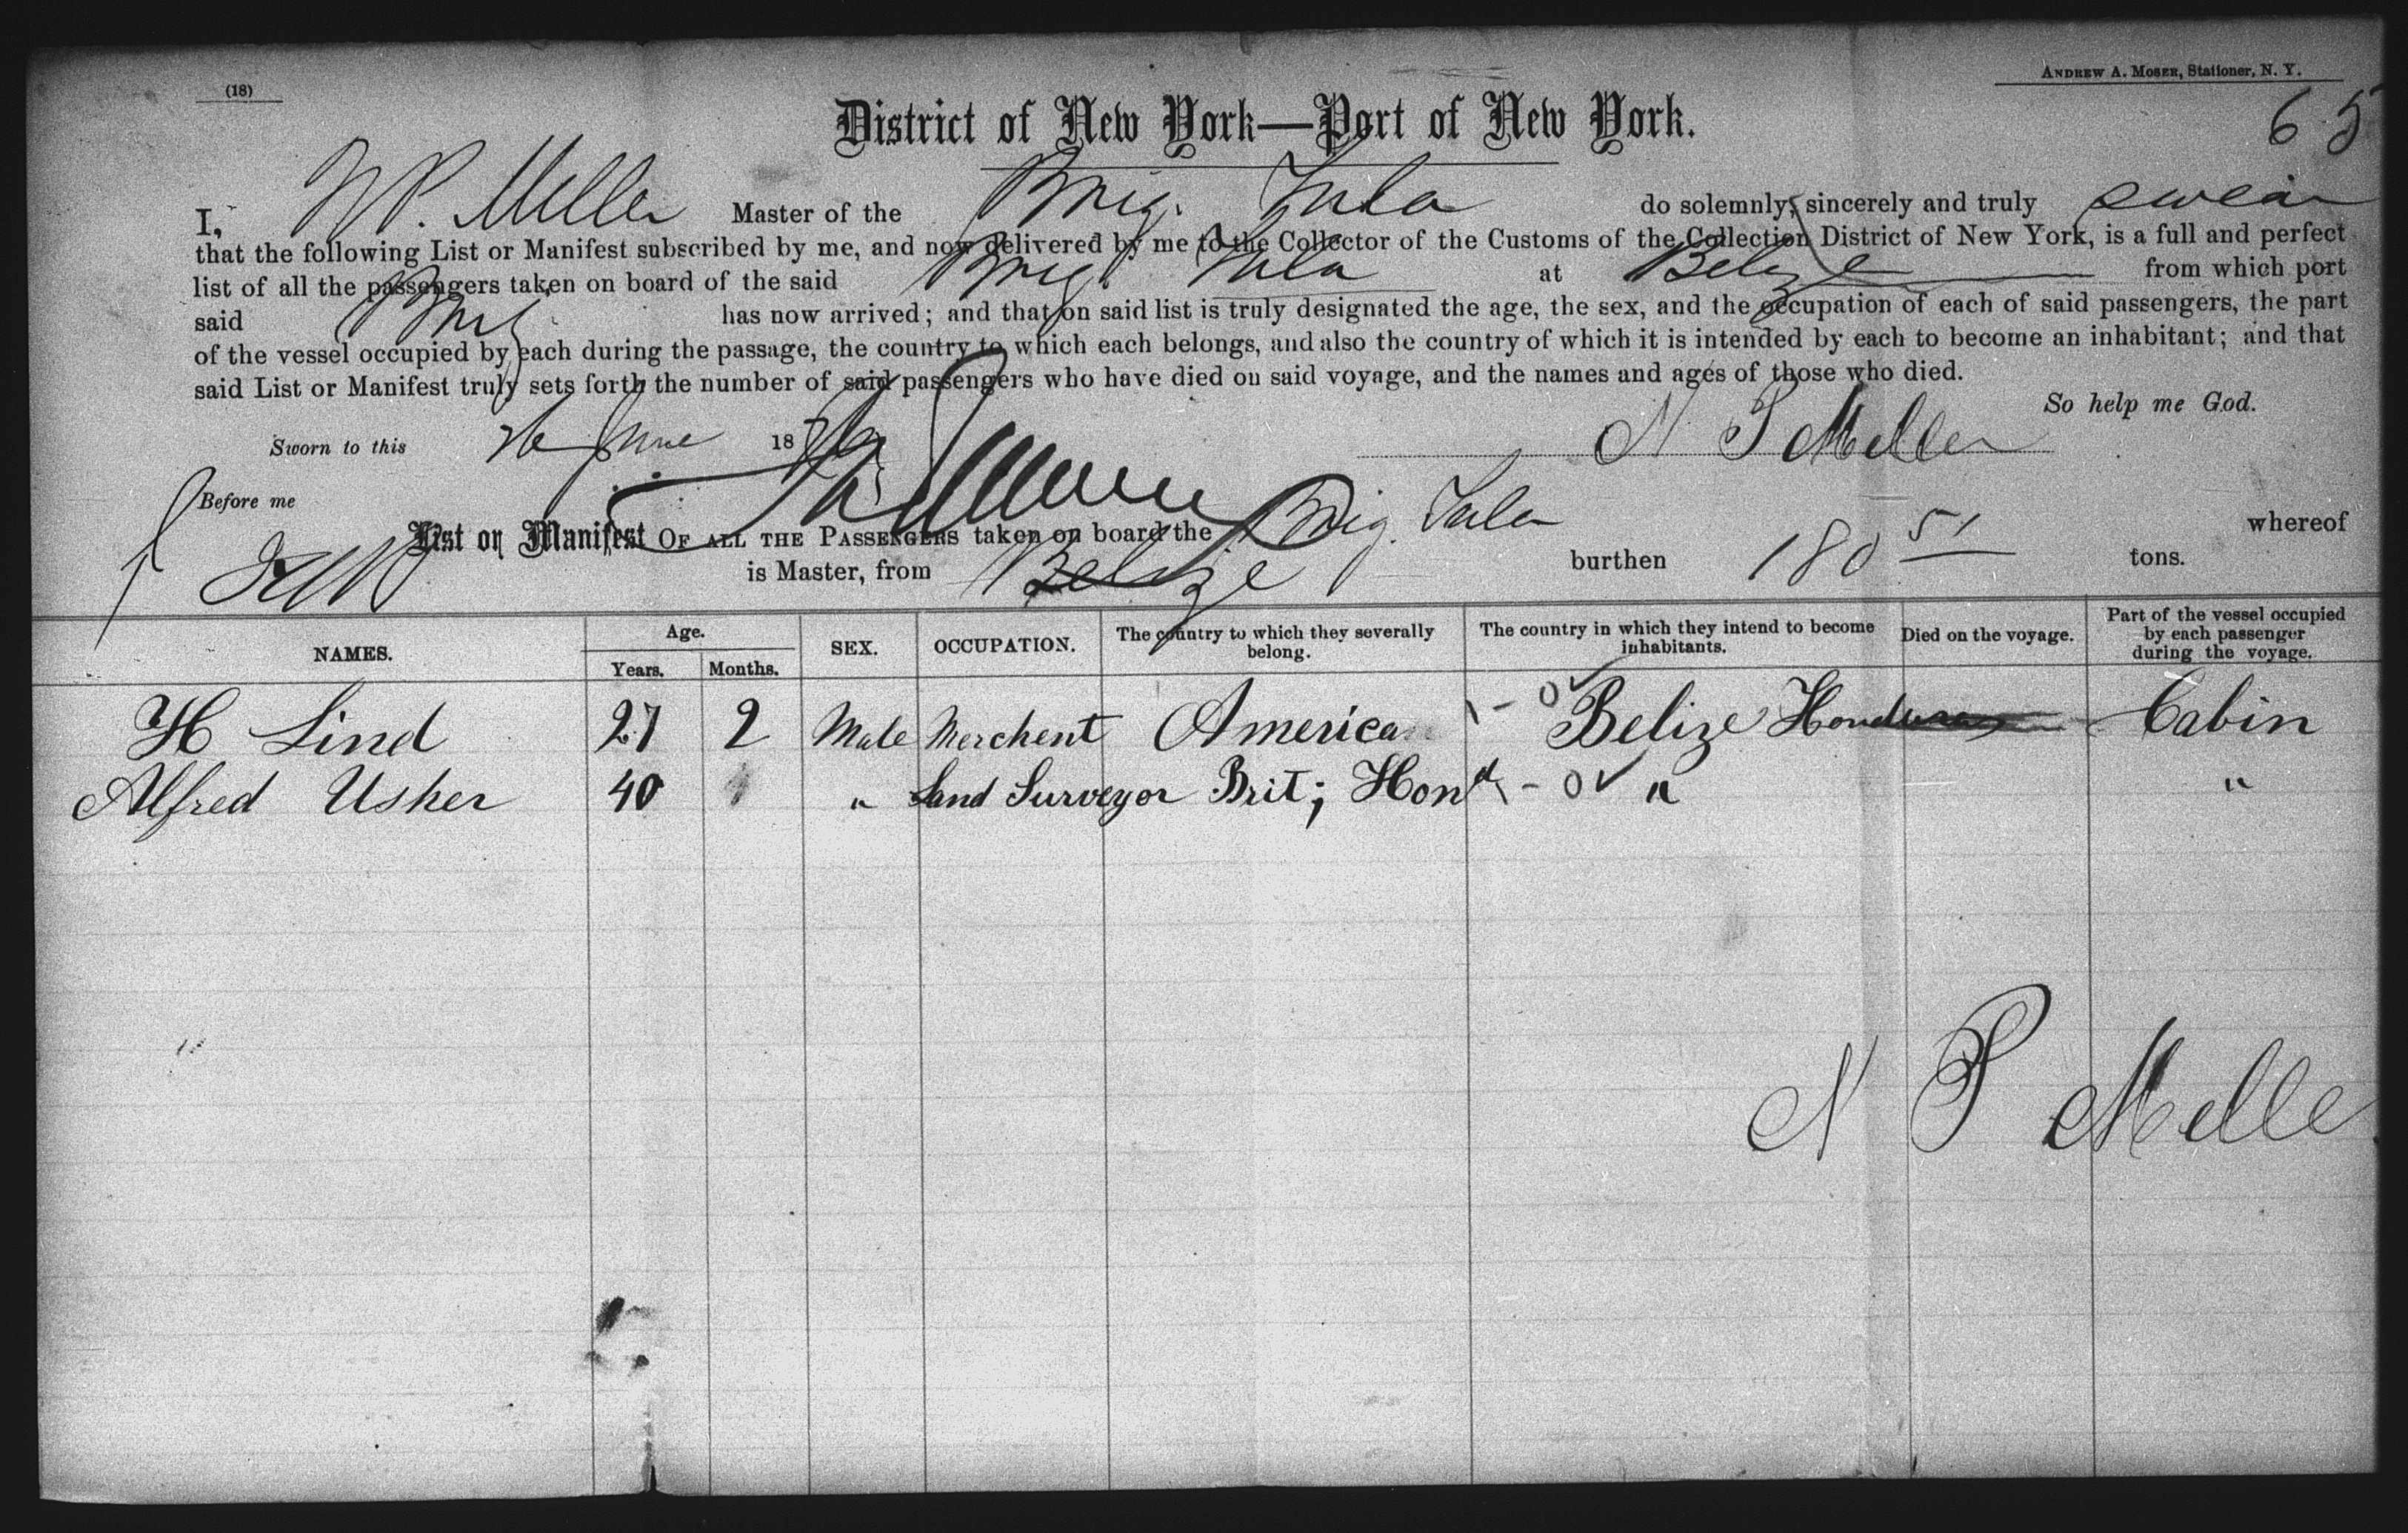 (18)
ANDREW A. MOSER, Stationer, N. Y.
65
District of New York—Port of New York.
I, N P. Meller Master of the Brig. Tula do solemnly, sincerely and truly swear
that the following List or Manifest subscribed by me, and now delivered by me to the Collector of the Customs of the Collection District of New York, is a full and perfect
list of all the passengers taken on board of the said Brig. Tula at Belize from which port
said Brig. has now arrived; and that on said list is truly designated the age, the sex, and the occupation of each of said passengers, the part
of the vessel occupied by each during the passage, the country to which each belongs, and also the country of which it is intended by each to become an inhabitant; and that
said List or Manifest truly sets forth the number of said passengers who have died on said voyage, and the names and ages of those who died.
So help me God.
Sworn to this 26 June 1876
N P Meller
Before me
List or Manifest OF ALL THE PASSENGERS taken on board the Brig. Tula whereof
is Master, from Belize burthen 180 51 tons.
NAMES. Age. Years. Months. SEX. OCCUPATION. The country to which they severally belong. The country in which they intend to become inhabitants. Died on the voyage. Part of the vessel occupied by each passenger during the voyage.
H Lind 27 2 Male Merchent American Belize Honduras Cabin
Alfred Usher 40 " Land Surveyor Brit; Hond " "
N P Melle